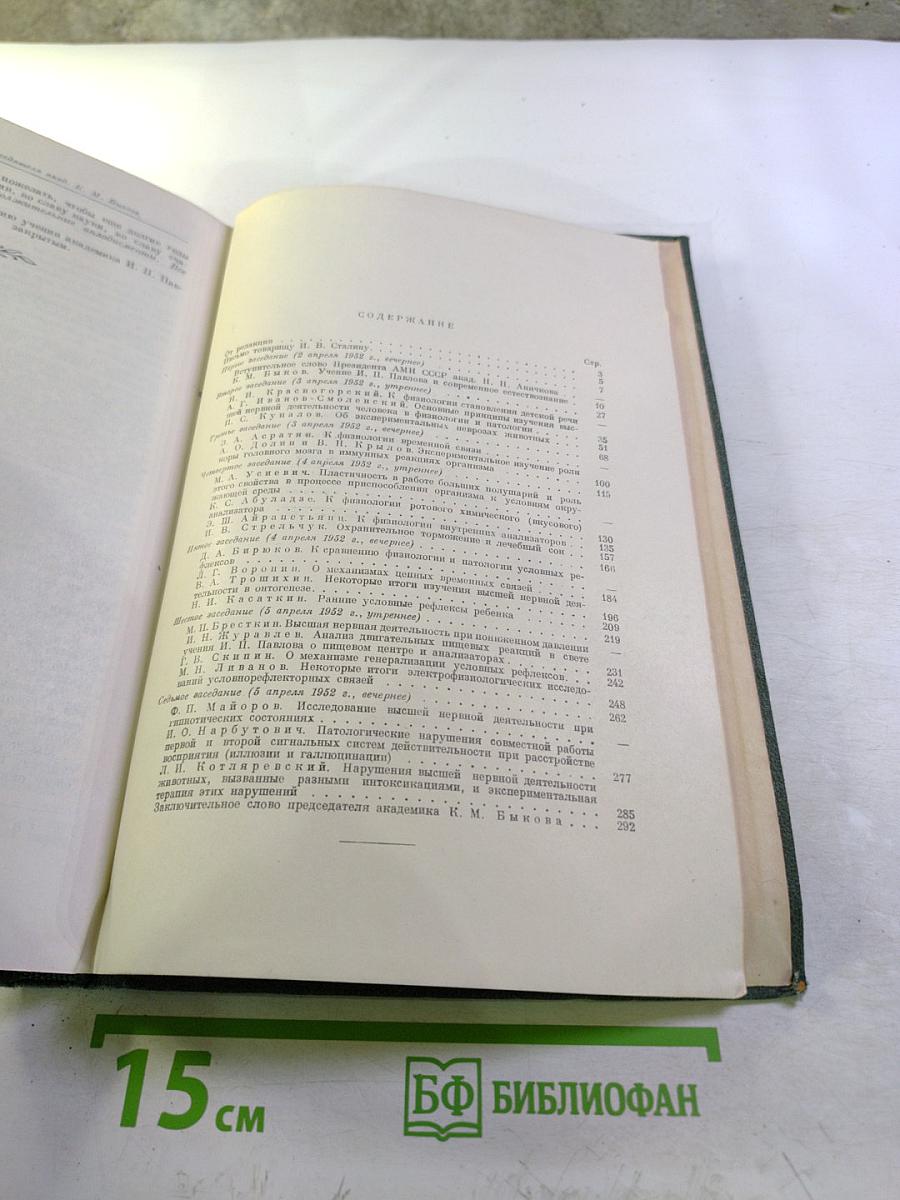 седателя акад. К. М. Быкова
пожелать, чтобы еще долгие годы
во славу науки, во славу
аплодисменты. Все
учения академика И. П. Пав-
закрытым.
СОДЕРЖАНИЕ
Стр.
От редакции 3
Письмо товарищу И. В. Сталину 5
Первое заседание (2 апреля 1952 г., вечернее) 7
Вступительное слово Президента АМН СССР акад. Н. Н. Аничкова —
К. М. Быков. Учение И. П. Павлова и современное естествознание 10
Второе заседание (3 апреля 1952 г., утреннее) 27
Н. И. Красногорский. К физиологии становления детской речи —
А. Г. Иванов-Смоленский. Основные принципы изучения выс-
шей нервной деятельности человека в физиологии и патологии 35
П. С. Купалов. Об экспериментальных неврозах животных 51
Третье заседание (3 апреля 1952 г., вечернее) 68
Э. А. Асратян. К физиологии временной связи —
А. О. Долин и В. Н. Крылов. Экспериментальное изучение роли
коры головного мозга в иммунных реакциях организма 100
Четвертое заседание (4 апреля 1952 г., утреннее) 115
М. А. Усиевич. Пластичность в работе больших полушарий и роль
этого свойства в процессе приспособления организма к условиям окру-
жающей среды —
К. С. Абуладзе. К физиологии ротового химического (вкусового)
анализатора 130
Э. Ш. Айрапетьянц. К физиологии внутренних анализаторов 135
И. В. Стрельчук. Охранительное торможение и лечебный сон 157
Пятое заседание (4 апреля 1952 г., вечернее) 166
Д. А. Бирюков. К сравнению физиологии и патологии условных ре-
флексов —
Л. Г. Воронин. О механизмах цепных временных связей 184
В. А. Трошихин. Некоторые итоги изучения высшей нервной дея-
тельности в онтогенезе 196
Н. И. Касаткин. Ранние условные рефлексы ребенка 209
Шестое заседание (5 апреля 1952 г., утреннее) 219
М. П. Бресткин. Высшая нервная деятельность при пониженном давлении —
И. Н. Журавлев. Анализ двигательных пищевых реакций в свете
учения И. П. Павлова о пищевом центре и анализаторах 231
Г. В. Скипин. О механизме генерализации условных рефлексов. 242
М. Н. Ливанов. Некоторые итоги электрофизиологических исследо-
ваний условнорефлекторных связей 248
Седьмое заседание (5 апреля 1952 г., вечернее) 262
Ф. П. Майоров. Исследование высшей нервной деятельности при
гипнотических состояниях —
И. О. Нарбутович. Патологические нарушения совместной работы
первой и второй сигнальных систем действительности при расстройстве
восприятия (иллюзии и галлюцинации) 277
Л. И. Котляревский. Нарушения высшей нервной деятельности
животных, вызванные разными интоксикациями, и экспериментальная
терапия этих нарушений 285
Заключительное слово председателя академика К. М. Быкова 292
15 см
БФ БИБЛИОФАН